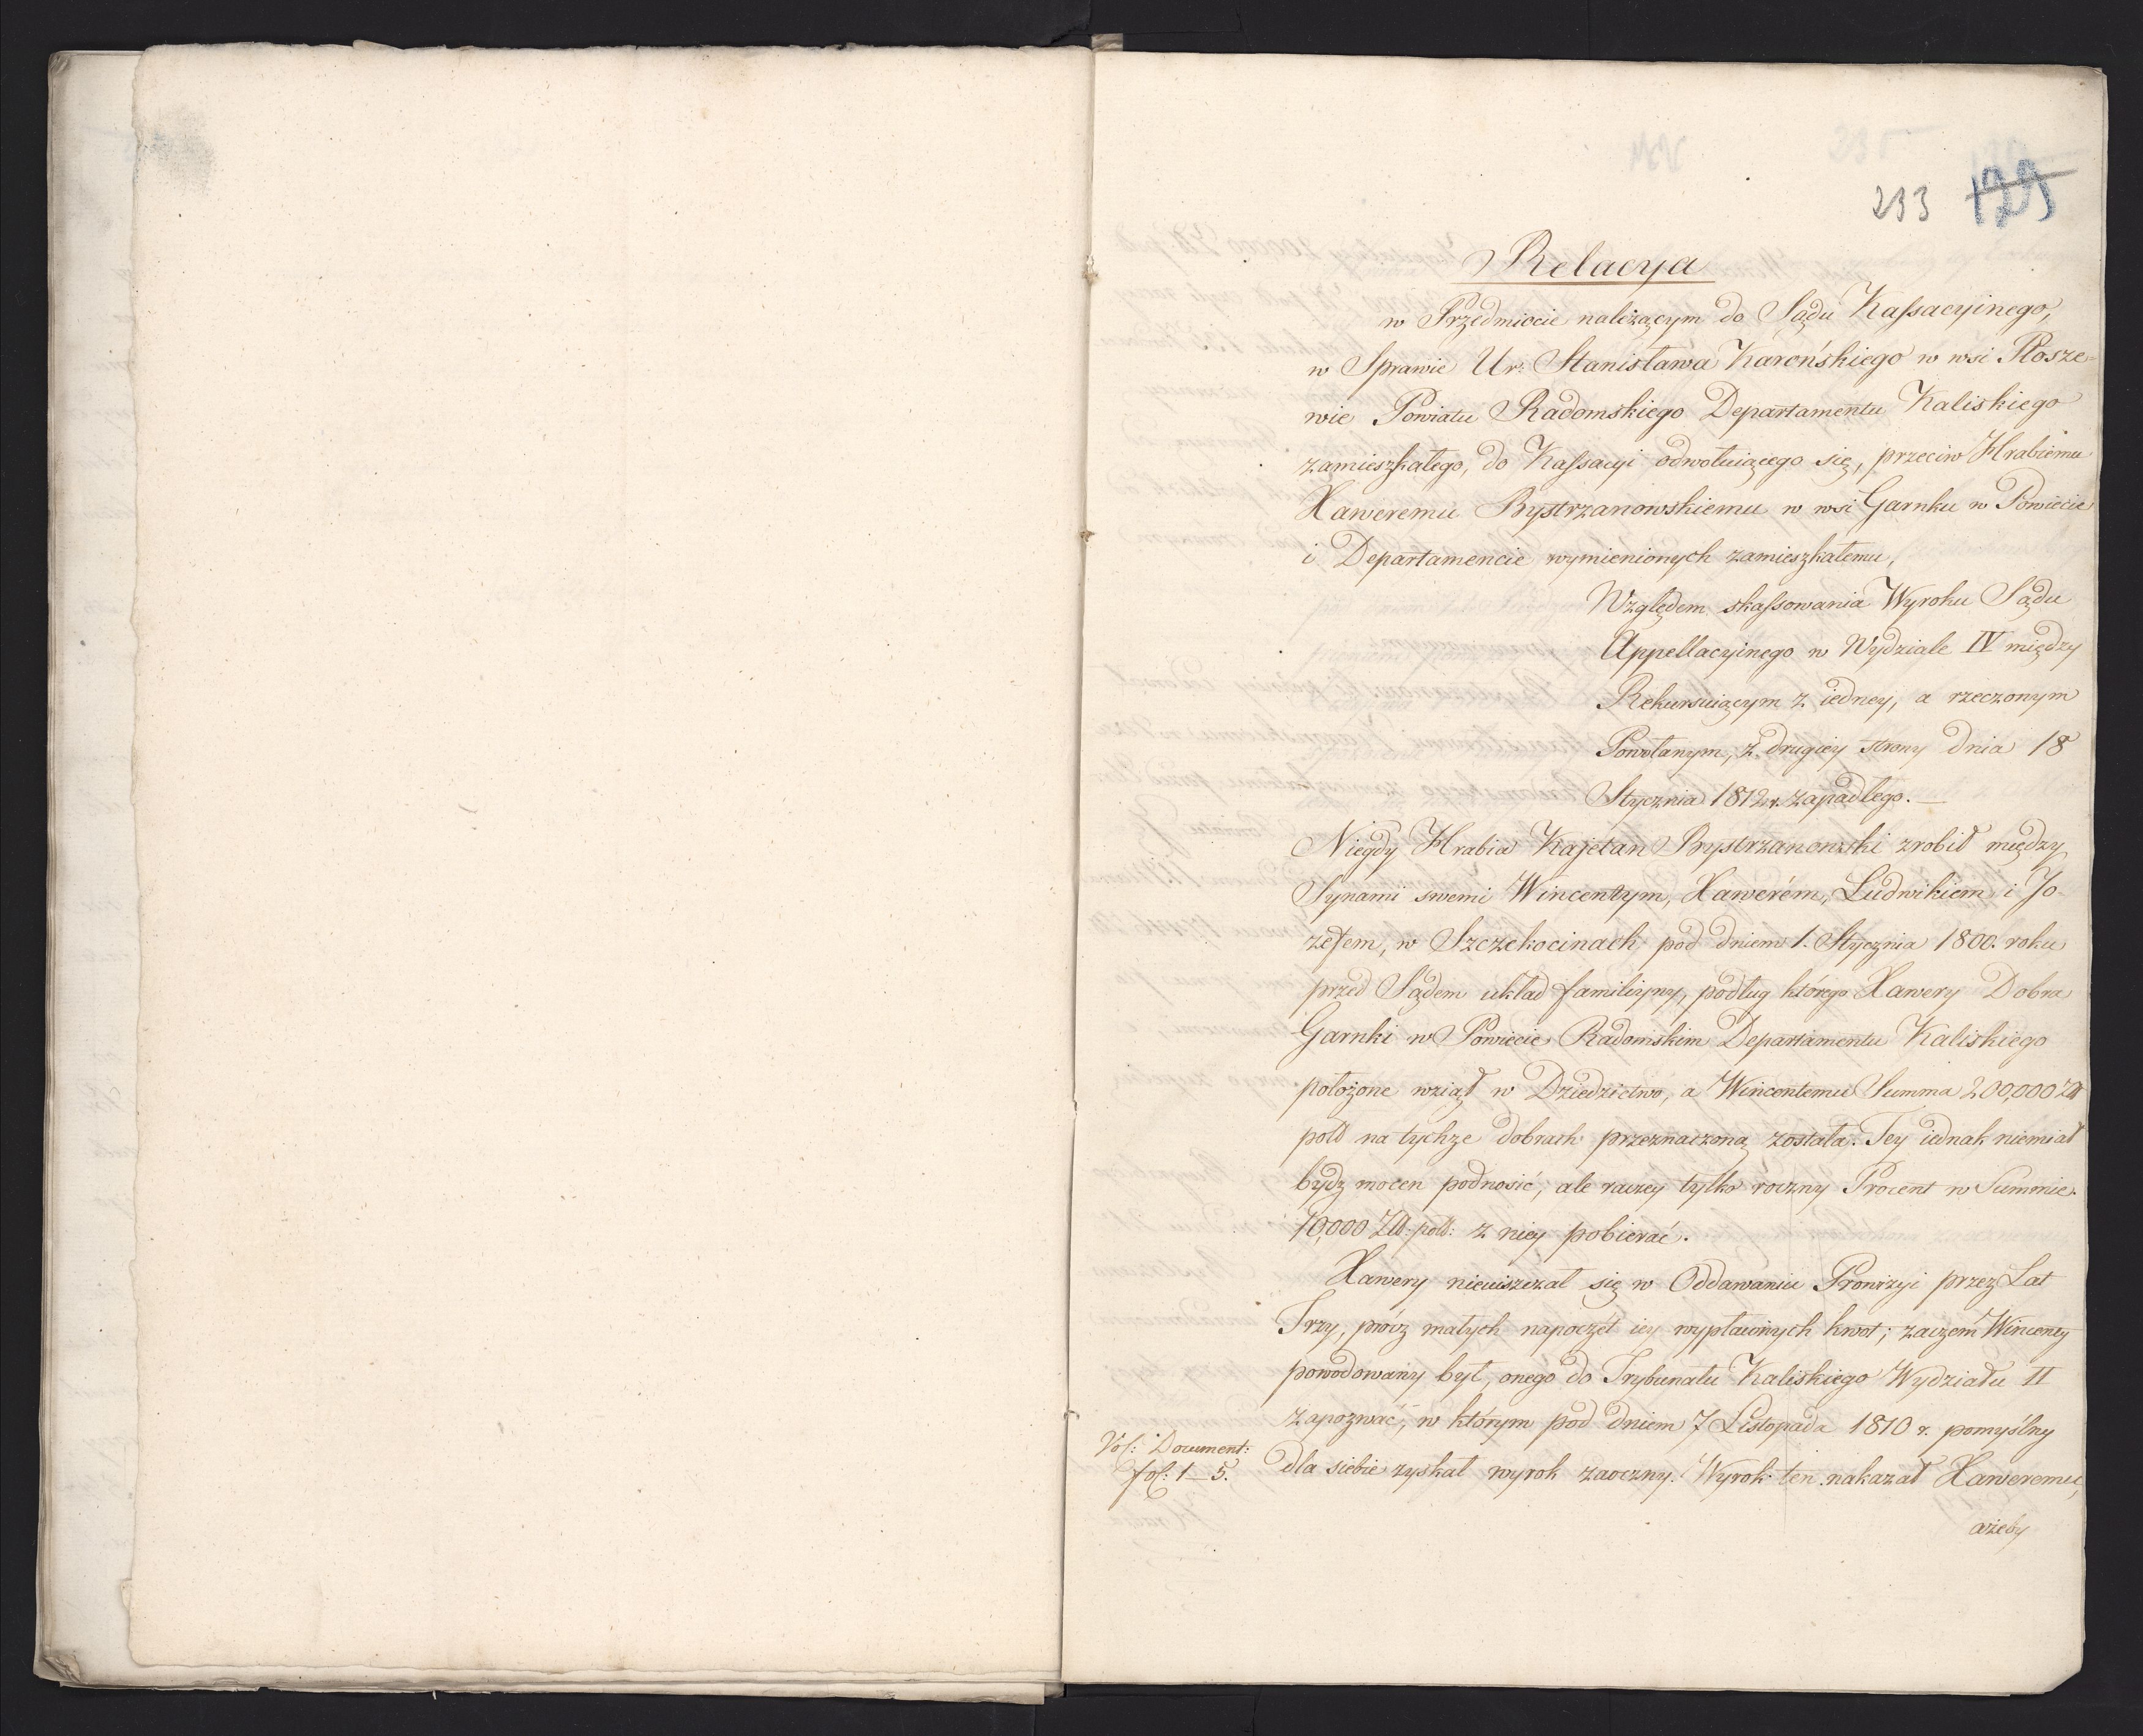 233 129
Relacya
w Przedmiocie należącym do Sądu Kassacyinego,
w Sprawie Ur: Stanisława Karońskiego w wsi Płosze-
wie Powiatu Radomskiego Departamentu Kaliskiego
zamieszkałego, do Kassacyi odwołuiącego się, przeciw Hrabiemu
Xaweremu Bystrzanowskiemu w wsi Garnku w Powiecie
i Departamencie wymienionych zamieszkałemu,
Względem skassowania Wyroku Sądu
Appellacyinego w Wydziale IV między
Rekursuiącym z iedney, a rzeczonym
Powołanym, z drugiey strony dnia 18
Stycznia 1812 r. zapadłego. —
Niegdy Hrabia Kajetan Bystrzanowski zrobił między
Synami swemi Wincentym, Xawerém, Ludwikiem i Jo-
zefem, w Szczekocinach pod dniem 1. Stycznia 1800. roku
przed Sądem układ familiyny, podług którego Xawery Dobra
Garnki w Powiecie Radomskim Departamentu Kaliskiego
położone wziął w Dziedzictwo, a Wincentemu Summa 200,000 Zł
pold na tychże dobrach przeznaczoną została. Tey iednak niemiał
bydź mocen podnosić, ale raczey tylko roczny Procent w Summie
10,000 Zł: pold: z niey pobierać.
Xawery nieuiszczał się w Oddawaniu Prowizyi przez Lat
Trzy, prócz małych napoczét iey wypłaconych kwot; zaczém Wincenty
powodowany był, onego do Trybunału Kaliskiego Wydziału II
zapozwać, w którym pod dniem 7 Listopada 1810 r. pomyślny
Vol: Document:
fol: 1_5.
dla siebie zyskał wyrok zaoczny. Wyrok ten nakazał Xaweremu,
ażeby